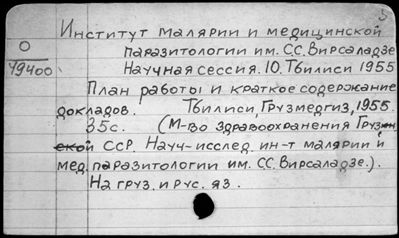 Институт малярии и медицинской
паразитологии им. С.С. Вирсаладзе
О
79400
Научная сессия. 10. Тбилиси 1955
План работы и краткое содержание
докладов. Тбилиси, Грузмедгиз, 1955.
35с. (М-во здравоохранения Грузин
ской ССР. Науч-исслед. ин-т малярии и
мед. паразитологии им. С.С. Вирсаладзе.).
На груз. и рус. яз.